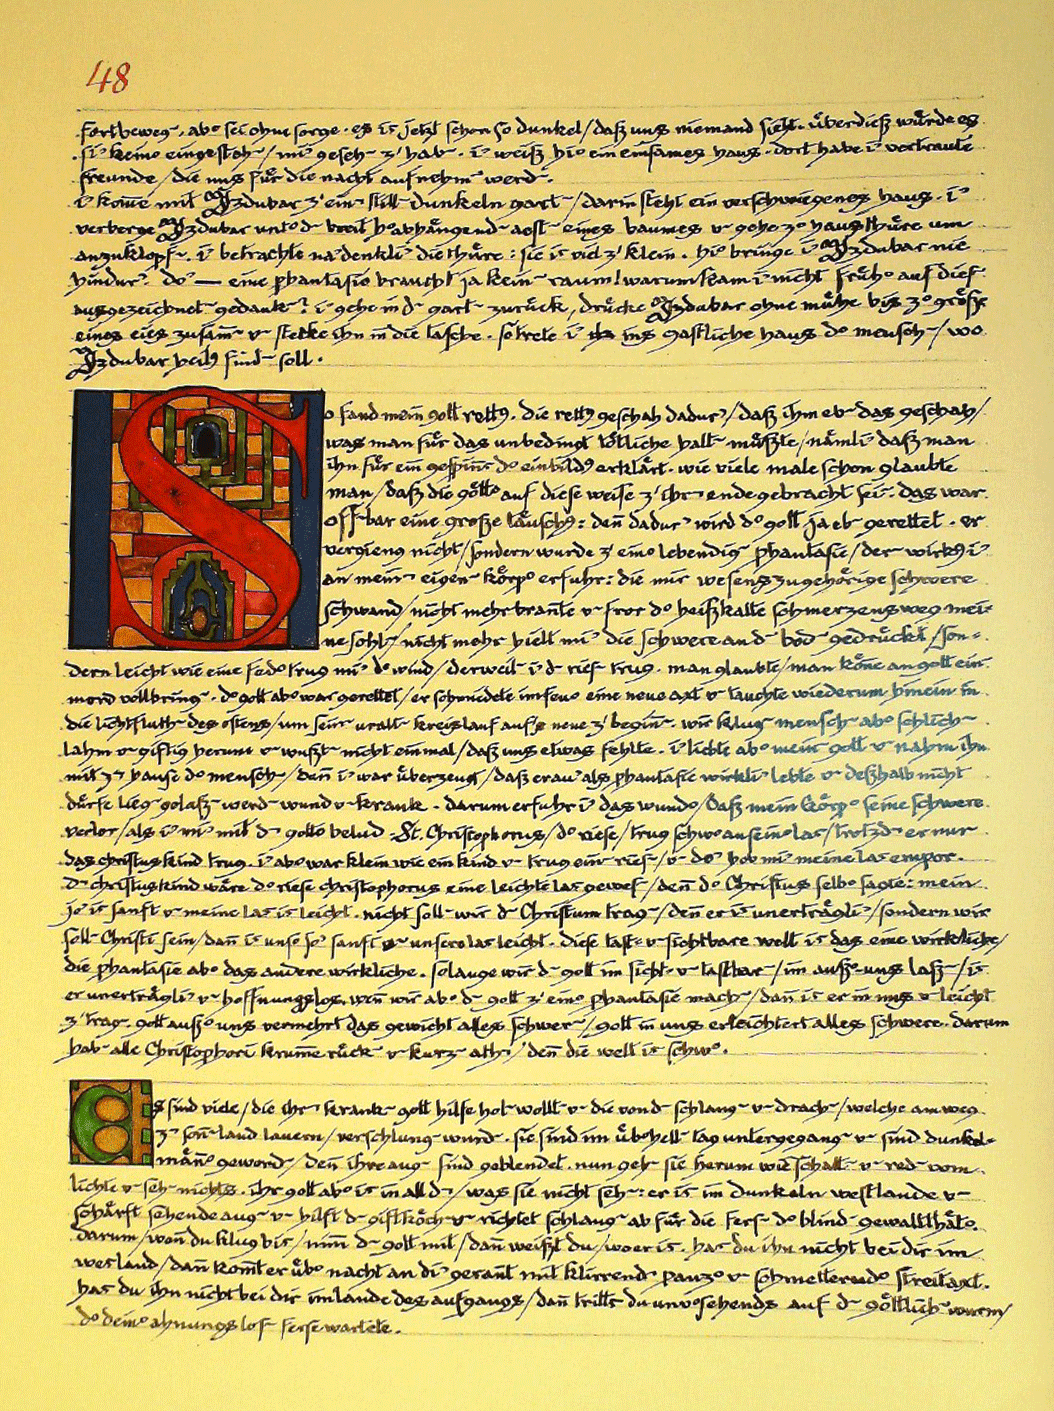 48
fortbeweg‾. ab° sei ohne sorge. es ist jetzt schon so dunkel/ daß uns niemand sieht. überdieß würde es
si' keine eingesteh‾/ mi' geseh‾ z' hab‾. i' weiß hi° ein einsames haus. dort habe i' vertraute
freunde/ die uns für die nacht aufnehm‾ werd‾.
i' kom̄e mit Izdubar z' ein‾ still‾ dunkeln gart‾/ darin steht ein verschwiegenes haus. i'
verberge Izdubar unt° d‾ breit h°abhängend‾ aest‾ eines baumes v‾ gehe z° hausthüre um
anzuklopf‾. i' betrachte na'denkli' die thüre: sie ist viel z' klein. hi° bringe i' Izdubar nie
hindur'. do' — eine phantasie braucht ja kein‾ raum! warum kam i' nicht früh° auf dies‾
ausgezeichnet‾ gedank‾? i' gehe in d‾ gart‾ zurück, drücke Izdubar ohne mühe bis z° größe
eines eies zusam̄‾ v‾ stecke ihn in die tasche. so trete i' ins gastliche haus d° mensch‾/ wo
Izdubar heil° find‾ soll.
So fand mein gott rett°. die rett° geschah dadur'/ daß ihm eb‾ das geschah/
was man für das unbedingt tötliche halt‾ müßte/ nämli' daß man
ihn für ein gespinst d° einbild° erklärt. wie viele male schon glaubte
man/ daß die gött° auf diese weise z' ihr‾ ende gebracht sei‾. das war
off‾bar eine große täusch°: den̄ dadur' wird d° gott ja eb‾ gerettet. er
vergieng nicht/ sondern wurde z' ein° lebendig‾ phantasie/ der‾ wirk° i'
an mein‾ eigen‾ körp° erfuhr: die mir wesenszugehörige schwere
schwand/ nicht mehr bran̄te v‾ fror d° heißkalte schmerzensweg mei‾
ne sohl‾/ nicht mehr hielt mi' die schwere an d‾ bod‾ gedrückt/ son=
dern leicht wie eine fed° trug mi' d° wind/ derweil i' d‾ ries‾ trug. man glaubte/ man kön̄e an gott ein‾
mord vollbring‾. d° gott ab° war gerettet/ er schmiedete im feu° eine neue axt v‾ tauchte wiederum hinein in
die lichtfluth des ostens/ um sein‾ uralt‾ kreislauf auf's neue z' begin̄‾. wir klug‾ mensch‾ ab° schlich‾
lahm v‾ giftig herum v‾ wußt‾ nicht einmal/ daß uns etwas fehlte. i' liebte ab° mein‾ gott v‾ nahm ihn
mit z‾ hause d° mensch‾/ den̄ i' war überzeugt/ daß er au' als phantasie wirkli' lebte v‾ deßhalb nicht
dürfe lieg‾ gelass‾ werd‾ wund v‾ krank. darum erfuhr i' das wund°/ daß mein körp° seine schwere
verlor/ als i' mi' mit d‾ gotte belud. St. Christophorus/ d° riese/ trug schw° an sein° last/ trotzd‾ er nur
das christuskind trug. i' ab° war klein wie ein kind v‾ trug ein‾ ries‾/ v‾ do' hob mi' meine last empor.
d‾ christuskind wäre d° riese christophorus eine leichte last gewes‾/ den̄ d° Christus selb° sagte: mein
jo' ist sanft v‾ meine last ist leicht. nicht soll‾ wir d‾ Christum trag‾/ den̄ er ist unerträgli'/ sondern wir
soll‾ Christi sein/ dan̄ ist uns° jo' sanft v‾ unsere last leicht. diese tast= v‾ sichtbare welt ist das eine wirkliche/
die phantasie ab° das andere wirkliche. solange wir d‾ gott im sicht= v‾ tastbar‾/ im auß° uns laß‾/ ist
er unerträgli' v‾ hoffnungslos. wen̄ wir ab° d‾ gott z' ein° phantasie mach‾/ dan̄ ist er in uns v‾ leicht
z' trag‾. gott auß° uns vermehrt das gewicht alles schwer‾/ gott in uns erleichtert alles schwere. darum
hab‾ alle Christophori krum̄e rück‾ v‾ kurz‾ ath‾/ den̄ die welt ist schw°.
Es sind viele/ die ihr‾ krank‾ gott hilfe hol‾ wollt‾ v‾ die von d‾ schlang‾ v‾ drach‾/ welche am weg‾
z° son̄‾land lauern/ verschlung‾ wurd‾. sie sind im üb°hell‾ tag untergegang‾ v‾ sind dunkel=
män̄° geword‾/ den̄ ihre aug‾ sind geblendet. nun geh‾ sie herum wie schatt‾ v‾ red‾ vom
lichte v‾ seh‾ nichts. ihr gott ab° ist in all d‾/ was sie nicht seh‾: er ist im dunkeln westlande v‾
schärft sehende aug‾ v‾ hilft d‾ giftköch‾ v‾ richtet schlang‾ ab für die fers‾ d° blind‾ gewaltthät°.
darum/ wen̄ du klug bist/ nim̄ d‾ gott mit/ dan̄ weißt du/ wo er ist. hast du ihn nicht bei dir im
westland/ dan̄ kom̄t er üb° nacht an di' geran̄t mit klirrend‾ panz° v‾ schmetternd° streitaxt.
hast du ihn nicht bei dir im lande des aufgangs/ dan̄ trittst du unv°sehends auf d‾ göttlich‾ wurm/
d° dein° ahnungslos‾ ferse wartete.